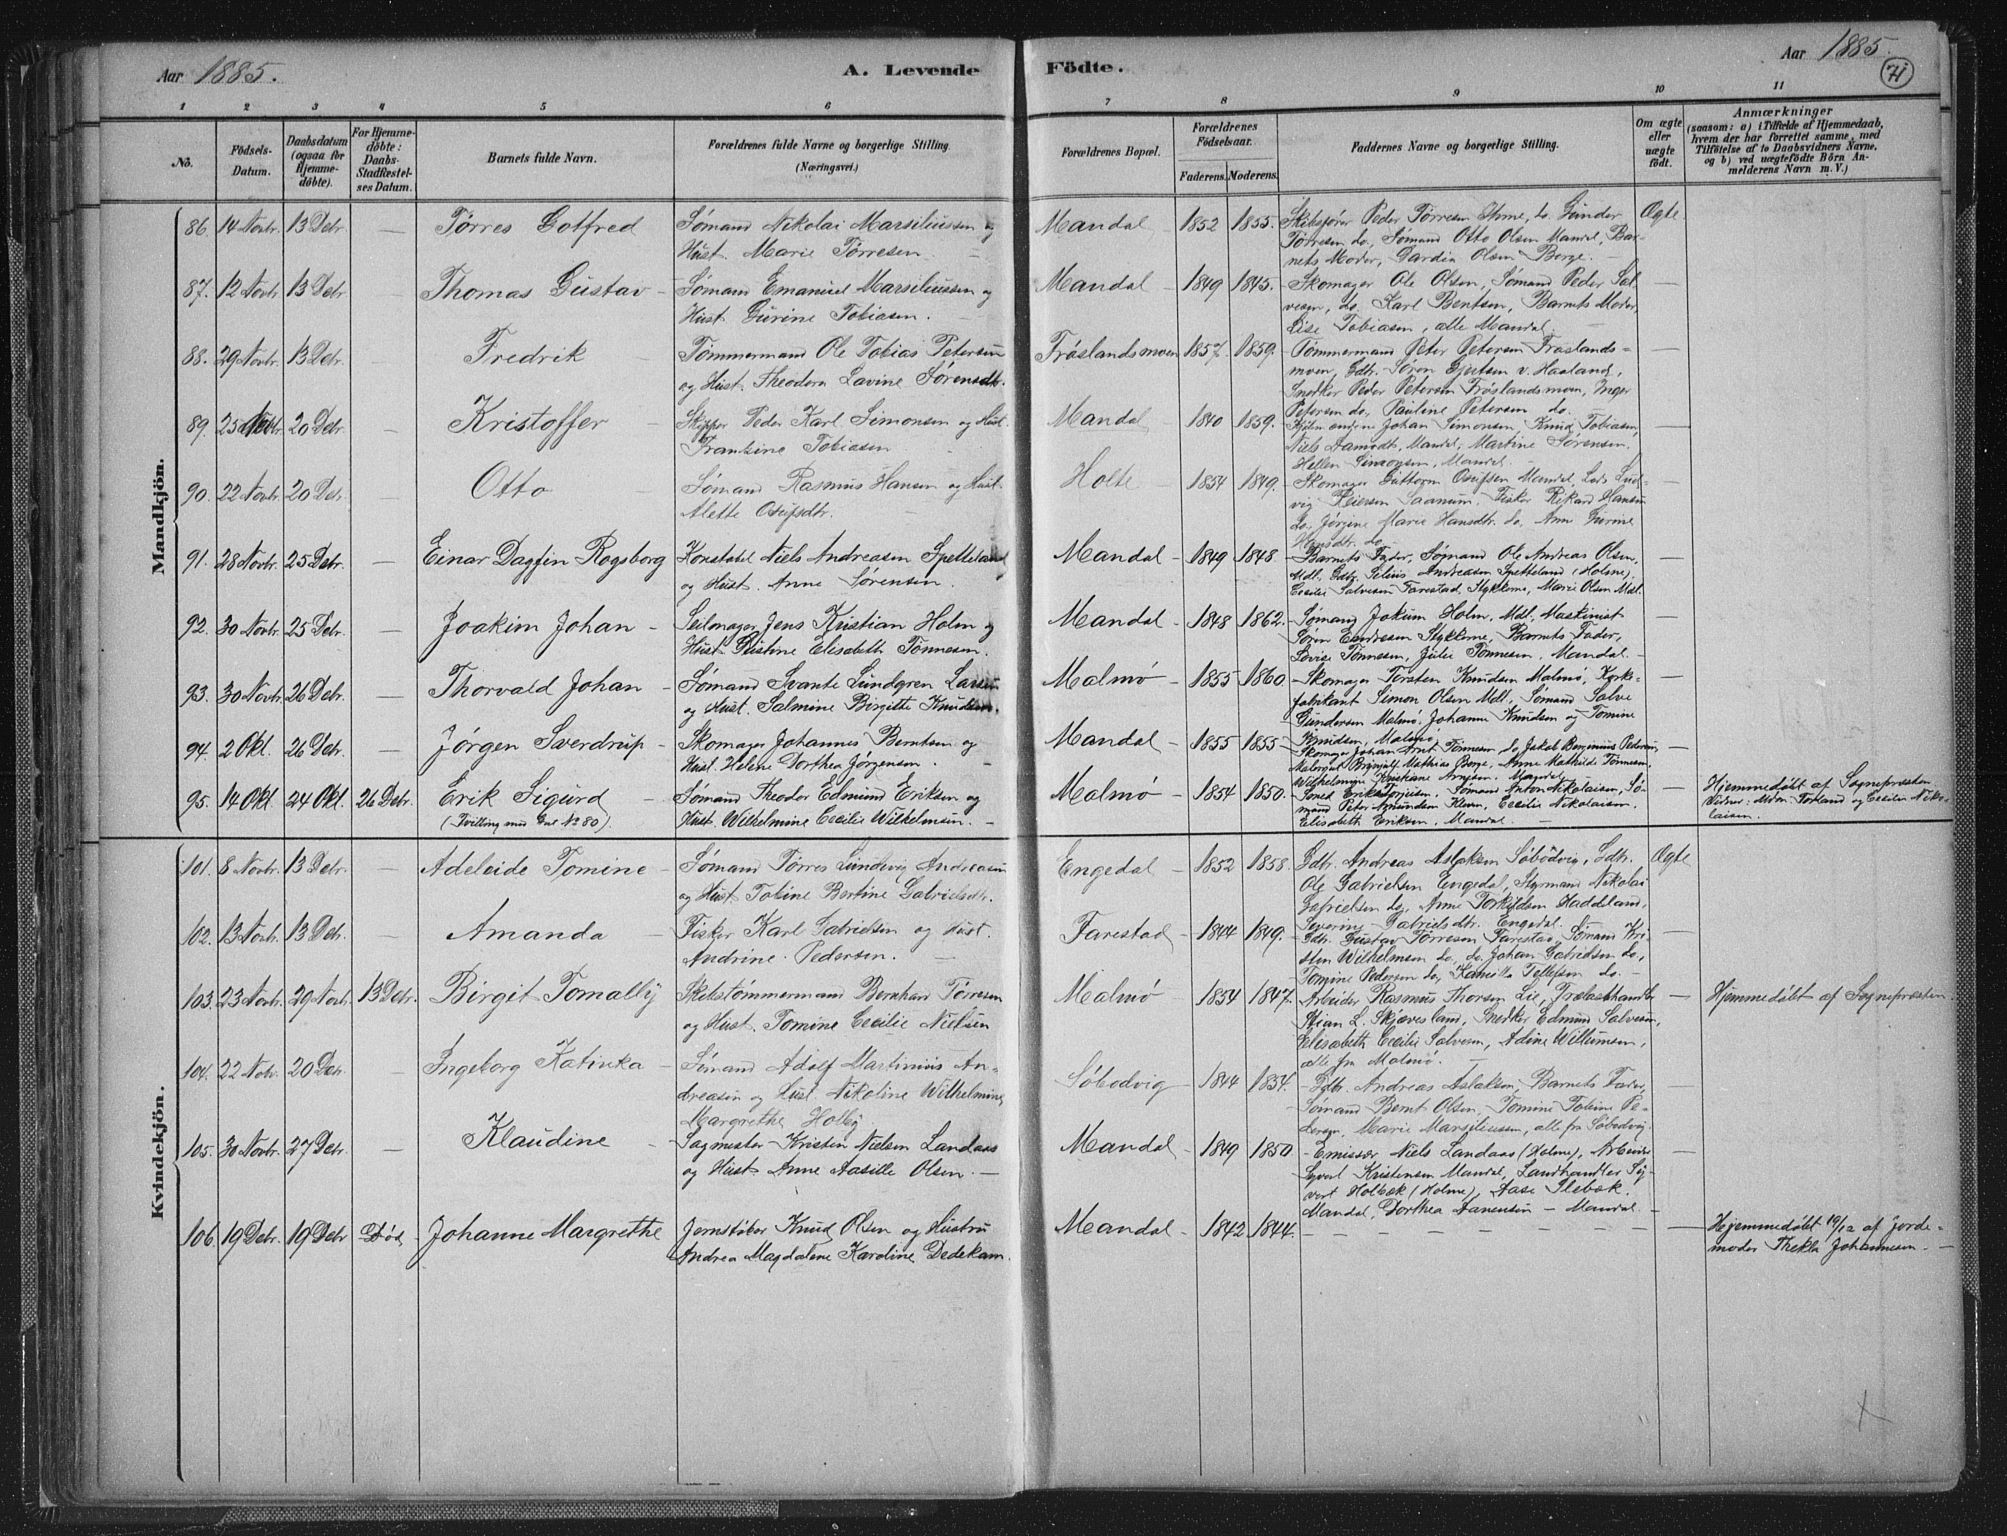 Aar 1885.
A. Levende Födte.
Aar 1885.
71
1 2 3 4 5 6 7 8 9 10 11
No.
Födsels-Datum.
Daabsdatum (ogsaa for Hjemme-döbte).
For Hjemme-döbte: Daabs-Stadfæstel-ses Datum.
Barnets fulde Navn.
Forældrenes fulde Navne og borgerlige Stilling. (Næringsvei.)
Forældrenes Bopæl.
Forældrenes Födselsaar.
Faderens. Moderens.
Faddernes Navne og borgerlige Stilling.
Om ægte eller uægte födt.
Anmærkninger
(saasom: a) i Tilfælde af Hjemmedaab, hvem der har forrettet samme, med Tilföielse af to Daabsvidners Navne, og b) ved uægtefödte Börn An-melderens Navn m. V.)
Mandkjön.
86. 14 Novbr. 13 Debr. — Tørres Gotfred Sømand Nikolai Marsiliussen og Mandal 1852 1855. Skibsfører Peder Tørresen Ihme, do. Gunder Ægte
Hust. Marie Tørresen. Tørresen do, Sømand Otto Olsen Mandal, Bar-
nets Moder, Dardia Olsen Berge.
87. 12 Novbr 13 Debr — Thomas Gustav Sømand Emanuel Marsiliussen og Mandal 1849 1845. Skomager Ole Olsen, Sømand Peder Sal-
Hust Gurine Tobiasen. vesen, do. Karl Bentsen, Barnets Moder,
Lise Tobiasen, alle Mandal.
88. 29 Novbr 13 Debr — Fredrik Tømmermand Ole Tobias Petersen Frøslandsmoen 1857. 1859. Tømmermand Peter Petersen Frøslands-
og Hust. Theodora Lavine Sørensdtr. moen, Gdtr. Søren Gjertsen v. Haaland,
Snedker Peder Petersen Frøslandsmoen, Inger
Petersen do, Pauline Petersen do.
89. 25 Novbr. 20 Debr. — Kristoffer Skipper Peder Karl Simonsen og Hust. Mandal 1840 1859. Johan Simonsen, Knud Tobiasen,
Frantsine Tobiasen Niels Mandal, Martine Sørensen.
Hellen Simonsen, Mandal.
90. 22 Novbr. 20 Debr. — Otto Sømand Rasmus Hansen og Hust. Holte 1854 1849. Skomager Guttorm Osufsen Mandal, Lods Lud-
Alette Osufsdtr. vig Reiersen Saanum, Fisker Rikard Hansen
do, Jørgine Marie Hansdtr. do, Ann Gurine
Hansdtr. do.
91. 28 Novbr. 25 Debr. — Einar Dagfin Rogsborg Konstabel Niels Andreasen Spetteland Mandal 1849 1848. Barnets Fader, Sømand Ole Andreas Olsen,
og Hust. Anne Sørensen. Mdl. Gdtr. Andreasen Spetteland (Holme).
Cecilie Salvesen Farestad, Stykkene, Marie Olsen Mdl.
92. 30 Novbr. 25 Debr. — Joakim Johan Seilmager Jens Kristian Holm og Mandal 1848 1862. Sømand Jokum Holm, Mdl. Maskinist
Hust. Elisabeth Tønnesen. Søren Endresen Stykkene, Barnets Fader,
Lovise Tønnesen, Julie Tønnesen, Mandal.
93. 30 Novbr. 26 Debr. — Thorvald Johan Sømand Svante Lundgren Larsen Malmø 1855 1860. Skomager Torsten Knudsen Malmø, Kork-
og Hust. Salmine Birgitte Knudsen. fabrikant Simon Olsen Mdl., Sømand Salve
Gundersen Malmø, Johanne Knudsen og Tomine
Knudsen, Malmø.
94. 2 Okt. 26 Debr. — Jørgen Sverdrup Skomager Johannes Berntsen og Mandal 1855 1855 Skomager Johan Arnt Tønnesen do, Jakob Benjamin Pedersen,
Hust. Helene Dorthea Jørgensen. Mathias Berge, Anne Mathilde Tønnesen,
Wilhelmine Kristiane Mandal.
95. 14 Okt. 24 Okt. 26 Debr. Erik Sigurd Sømand Theodor Edmund Eriksen og Malmø 1854 1850. Sømand Anton Nikolaisen, Sø-
(Tvilling med No 80). Hust. Wilhelmine Cecilie Wilhelmsen. mand Peter Amundsen Kleven, Cecilie Nikolaisen.
Elisabeth Eriksen, Mandal.
Hjemmedøbt af Sognepræsten.
Vidner: Mdm. Torland og Cecilie Niko-
laisen.
Kvindekjön.
101. 8 Novbr. 13 Debr. — Adeleide Tomine Sømand Tørres Lundevig Andreasen Engedal 1852 1858. Gdtr. Andreas Aslaksen Søbödvig, Gdtr. Ægte
og Hust Tobine Bertine Gabrielsdtr. Ole Gabrielsen Engedal, Styrmand Nikolai
Gabrielsen do, Anne Torkildsen Haddeland,
Severine Gabrielsdtr. Engedal.
102. 13 Novbr. 13 Debr. — Amanda Fisker Karl Gabrielsen og Hust. Farestad 1844 1849. Gdtr. Gustav Tørresen Farestad, Sømand Kri-
Andrine Pedersen. Wilhelmsen do, do. Johan Gabrielsen do,
Tomine Pedersen do, Kamilla Tellefsen do.
103. 23 Novbr. 29 Novbr. 13 Debr. Birgit Tomally Skibstømmermand Bernhard Tørresen Malmø 1854 1847. Arbeider Rasmus Thorsen Lie, Trælasthandler
og Hust. Tomine Cecilie Nielsen Stian L. Skjævesland, Snedker Edmund Salvesen,
Elisabeth Cecilie Salvesen, Adine Willumsen,
alle fra Malmø.
Hjemmedøbt af Sognepræsten.
104. 22 Novbr. 20 Debr. — Ingeborg Kativka Sømand Adolf Martinius An- Søbødvig 1844 1854. Gdtr. Andreas Aslaksen, Barnets Fader,
dreasen og Hust. Nikoline Wilhelmine Sømand Bernt Olsen, Tomine Tobine Pe-
Margrethe Holby dersen, Marie Marsiliussen, alle fra Søbødvig.
105. 30 Novbr. 27 Debr. — Klaudine Sagmester Kristen Nielsen Landaas Mandal 1849 1850 Emissær Niels Landaas (Holme), Arbeider
og Hust Anne Aasille Olsen. Syvert Kristensen Mandal, Landhandler Sy-
vert Holbæk (Holme), Aase Slebæk.
Mandal, Dorthea Aanensen Mandal.
106. 19 Debr. 19 Debr. Død Johanne Margrethe Jernstøber Knud Olsen og Hustru Mandal 1842 1844.
Andrea Magdalene Karoline Dedekam.
Hjemmedøbt 19/12 af Jorde-
moder Thekla Johannesen.